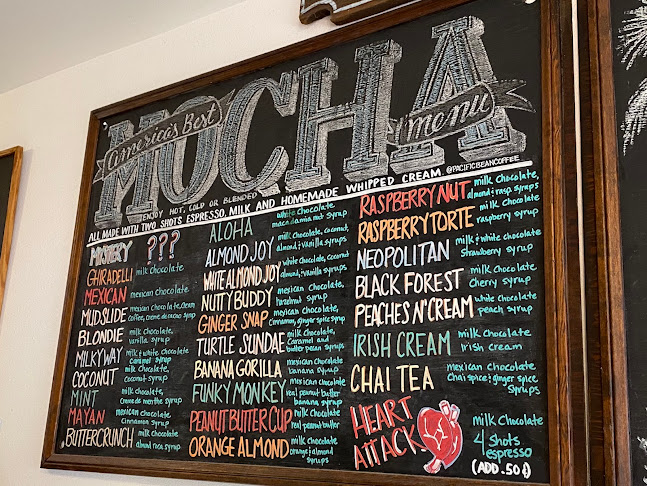 America's Best
MOCHA
menu
ENJOY HOT, COLD OR BLENDED
@PACIFICBEANCOFFEE
ALL MADE WITH TWO SHOTS ESPRESSO, MILK AND HOMEMADE WHIPPED CREAM.
MYSTERY ???
GHIRADELLI milk chocolate
MEXICAN mexican chocolate
MUDSLIDE mexican chocolate, Oreo
coffee, creme de cacao syrup
BLONDIE milk chocolate,
vanilla syrup
MILKYWAY milk & white chocolate
Caramel syrup
COCONUT milk chocolate,
Coconut syrup
MINT milk chocolate,
Creme de menthe syrup
MAYAN mexican chocolate
Cinnamon syrup
BUTTERCRUNCH milk chocolate
almond roca syrup
ALOHA white chocolate
macadamia nut syrup
ALMOND JOY milk chocolate, coconut,
almond & vanilla syrups
WHITE ALMOND JOY white chocolate, coconut
almond, & vanilla syrups
NUTTY BUDDY mexican chocolate,
hazelnut syrup
GINGER SNAP mexican chocolate,
cinnamon, ginger spice syrup
TURTLE SUNDAE milk chocolate,
Caramel and
butter pecan syrups
BANANA GORILLA mexican chocolate
banana syrup
FUNKY MONKEY mexican chocolate
real peanut butter
banana syrup
PEANUT BUTTER CUP milk chocolate
real peanut butter
ORANGE ALMOND milk chocolate
orange & almond
syrups
RASPBERRY NUT milk chocolate,
almond & rasp syrups
RASPBERRY TORTE milk chocolate
raspberry syrup
NEOPOLITAN milk & white chocolate
Strawberry syrup
BLACK FOREST milk chocolate
cherry syrup
PEACHES N' CREAM white chocolate
peach syrup
IRISH CREAM milk chocolate
Irish cream
CHAI TEA mexican chocolate
Chai spice & ginger spice
Syrups
HEART
ATTACK
milk chocolate
4 shots
espresso
(ADD .50¢)